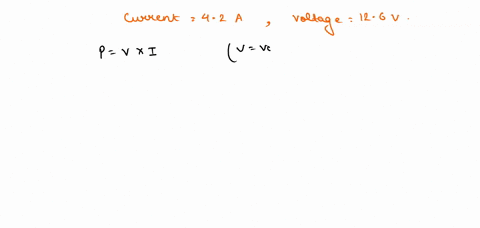 Current = 4.2 A , Voltage = 12.6 V.
P = V × I (V = Vo